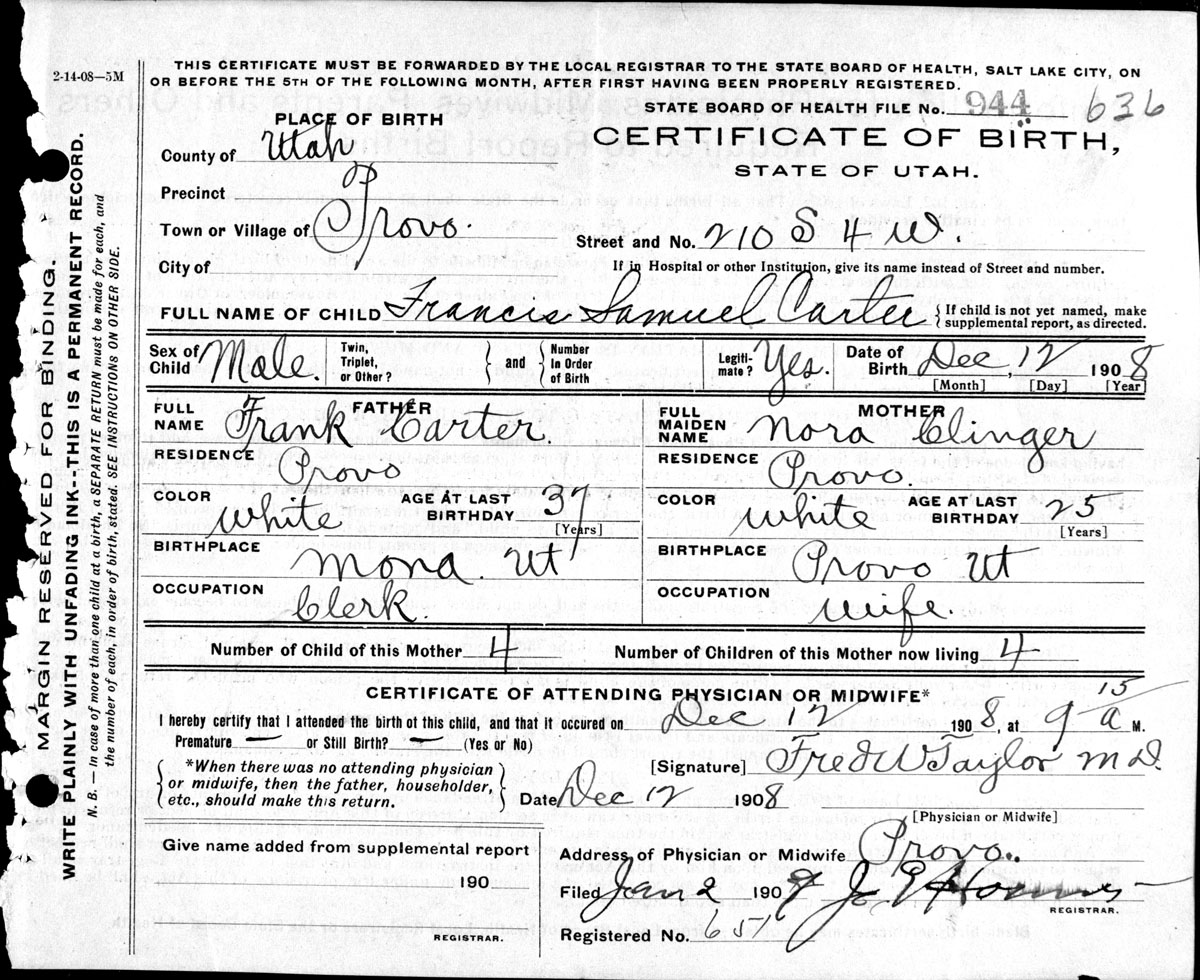 2-14-08—5M
THIS CERTIFICATE MUST BE FORWARDED BY THE LOCAL REGISTRAR TO THE STATE BOARD OF HEALTH, SALT LAKE CITY, ON
OR BEFORE THE 5TH OF THE FOLLOWING MONTH, AFTER FIRST HAVING BEEN PROPERLY REGISTERED.
STATE BOARD OF HEALTH FILE No. 944 636
PLACE OF BIRTH
CERTIFICATE OF BIRTH,
STATE OF UTAH.
County of Utah
Precinct
Town or Village of Provo.
Street and No. 210 S 4 W.
City of
If in Hospital or other Institution, give its name instead of Street and number.
FULL NAME OF CHILD Francis Samuel Carter { If child is not yet named, make supplemental report, as directed.
Sex of Child Male. Twin, Triplet, or Other? } and { Number In Order of Birth Legiti-mate? Yes. Date of Birth Dec, 12 1908
[Month] [Day] [Year]
FATHER
FULL NAME Frank Carter.
RESIDENCE Provo
COLOR White AGE AT LAST BIRTHDAY 37
[Years]
BIRTHPLACE Mona. Ut
OCCUPATION Clerk.
MOTHER
FULL MAIDEN NAME Nora Clinger
RESIDENCE Provo.
COLOR White AGE AT LAST BIRTHDAY 25
[Years]
BIRTHPLACE Provo Ut
OCCUPATION Wife.
Number of Child of this Mother 4 Number of Children of this Mother now living 4
CERTIFICATE OF ATTENDING PHYSICIAN OR MIDWIFE*
I hereby certify that I attended the birth of this child, and that it occured on Dec 12 1908, at 9 15 a M.
Premature — or Still Birth? — (Yes or No)
*When there was no attending physician
or midwife, then the father, householder,
etc., should make this return.
[Signature] Fred W Taylor M D.
Date Dec 12 1908
[Physician or Midwife]
Give name added from supplemental report
190
REGISTRAR.
Address of Physician or Midwife Provo.
Filed Jan 2 1909
REGISTRAR.
Registered No. 651
MARGIN RESERVED FOR BINDING.
WRITE PLAINLY WITH UNFADING INK--THIS IS A PERMANENT RECORD.
N. B.— In case of more than one child at a birth, a SEPARATE RETURN must be made for each, and
the number of each, in order of birth, stated. SEE INSTRUCTIONS ON OTHER SIDE.